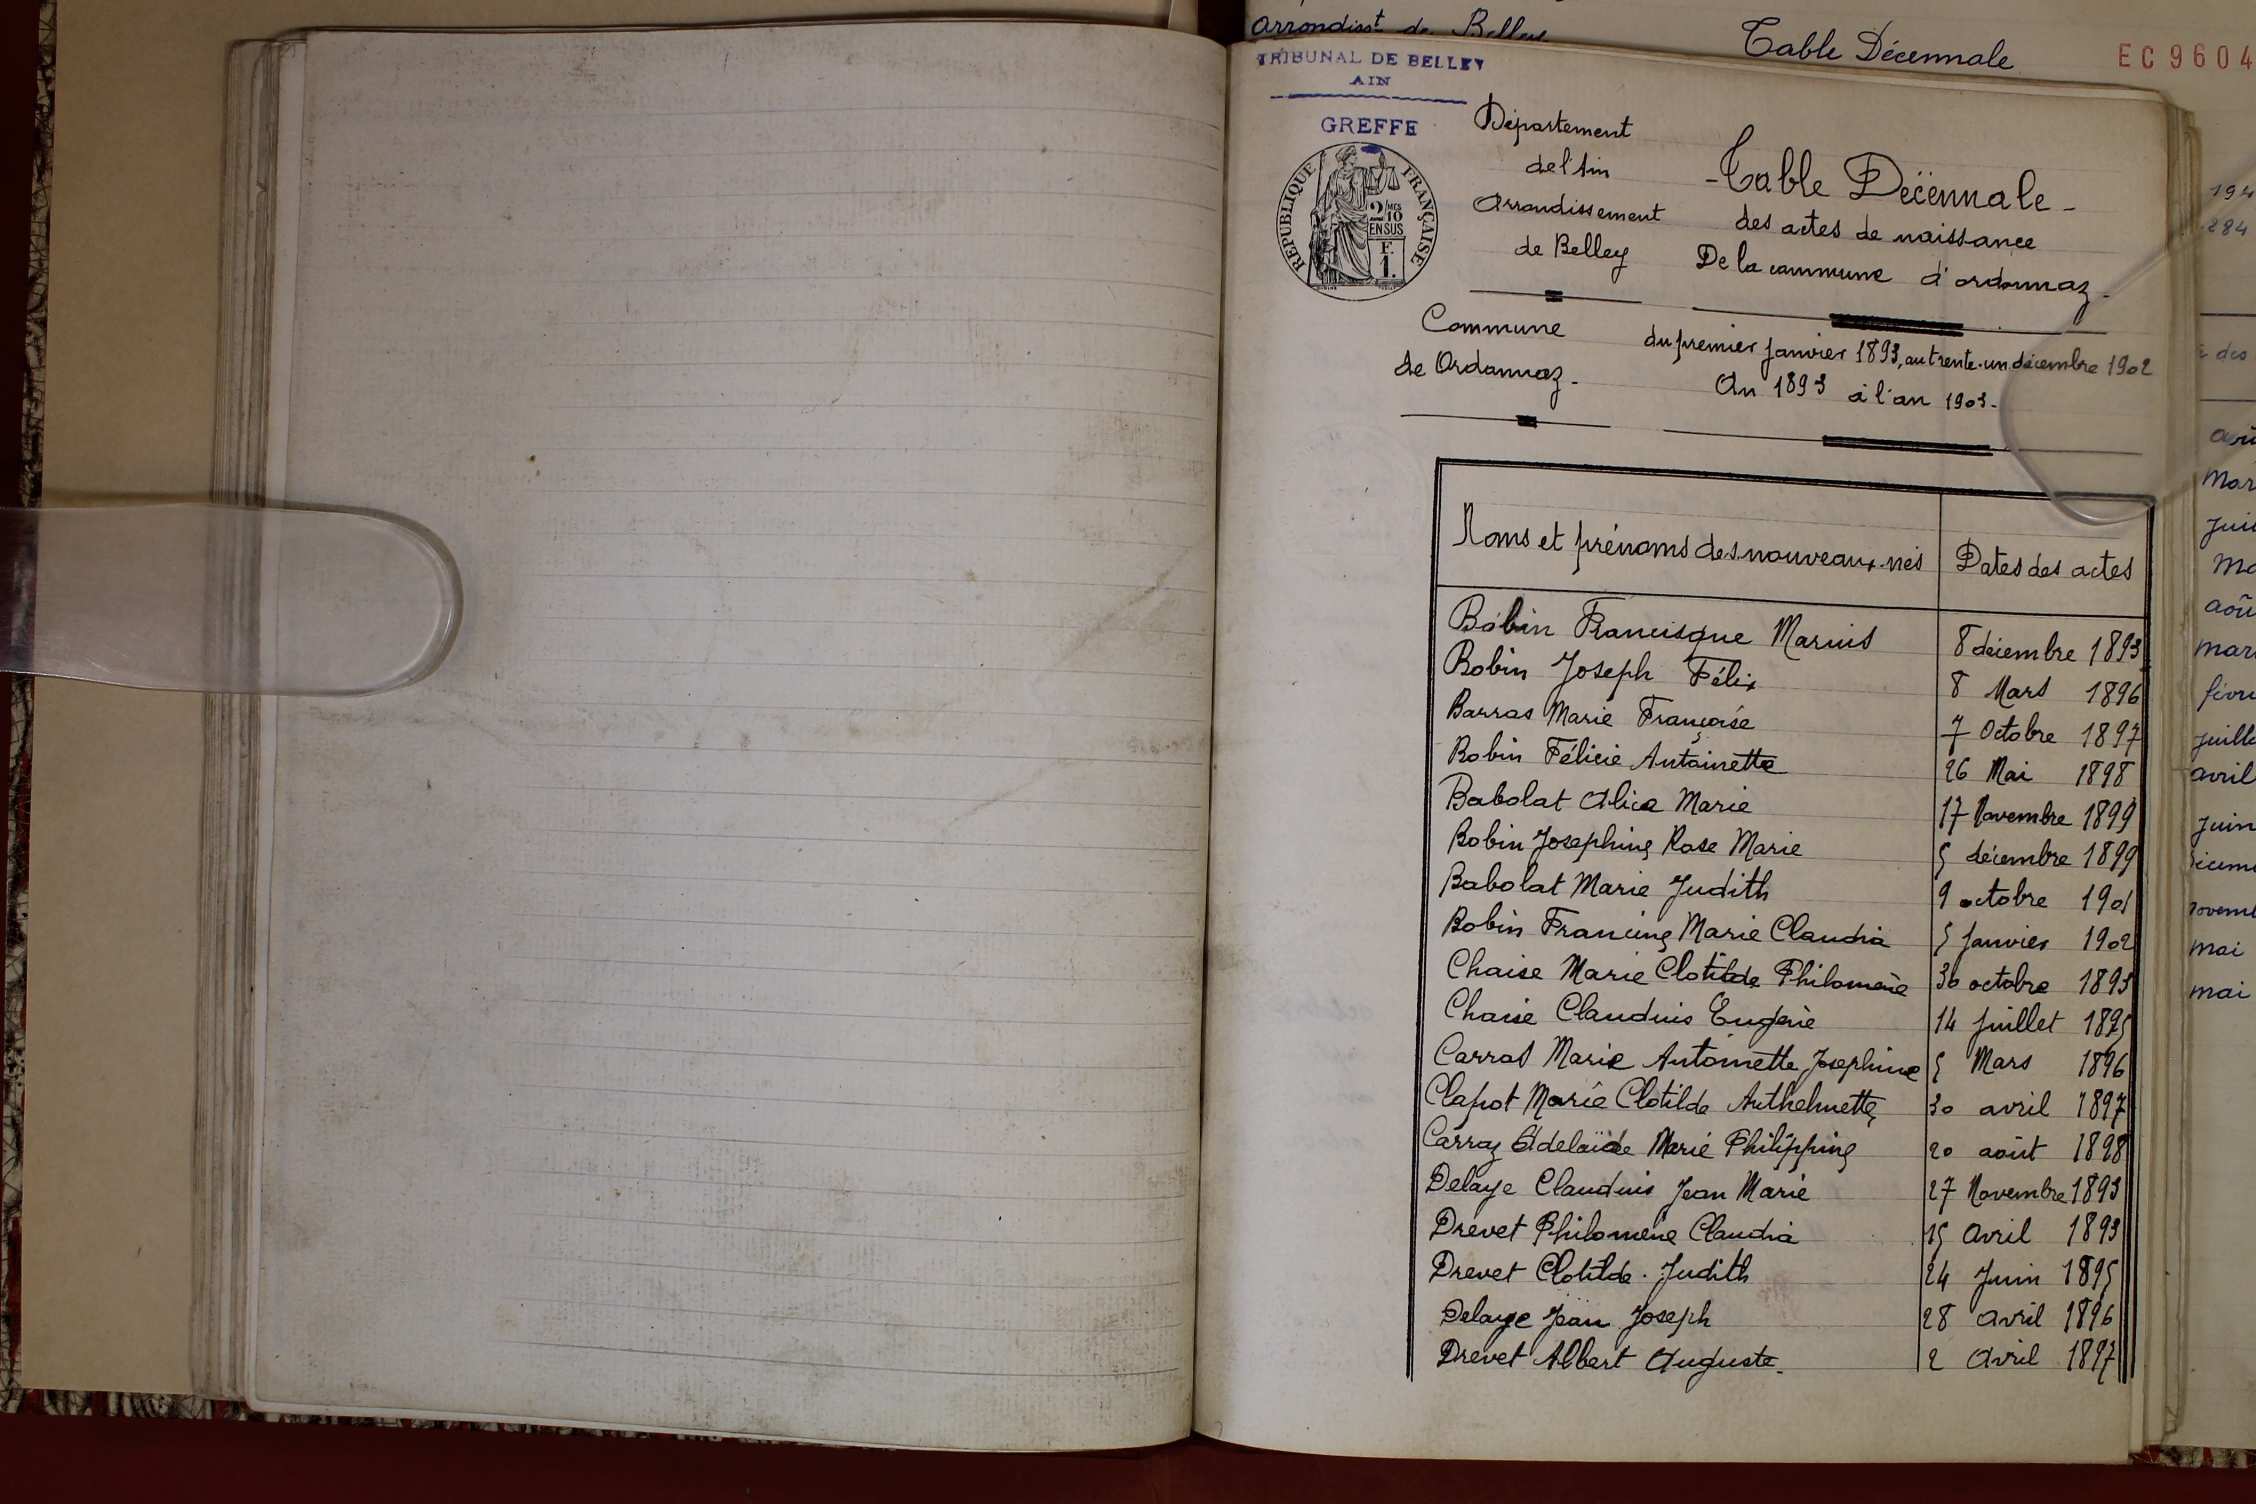 arrondisst de Belley
Table Décennale
EC9604
TRIBUNAL DE BELLEY
AIN
GREFFE
RÉPUBLIQUE FRANÇAISE
2 MES 10
EN SUS
F.
1.
Département
de l'Ain
Arrondissement
de Belley
- Table Décennale -
des actes de naissance
De la commune d'ordonnaz -
Commune
de Ordonnaz -
du premier janvier 1893, au trente-un décembre 1902
An 1893 à l'an 1903 -
Noms et prénoms des nouveaux-nés Dates des actes
Bobin Francisque Marius 8 décembre 1893
Bobin Joseph Félix 8 Mars 1896
Barras Marie Françoise 7 Octobre 1897
Robin Félicie Antoinette 26 Mai 1898
Babolat Alice Marie 17 Novembre 1899
Bobin Josephine Rose Marie 5 décembre 1899
Babolat Marie Judith 9 octobre 1901
Bobin Francine Marie Claudia 5 Janvier 1902
Chaise Marie Clotilde Philomène 30 octobre 1893
Chaise Claudius Eugène 14 Juillet 1895
Carras Marie Antoinette Josephine 5 Mars 1896
Clapot Marie Clotilde Anthelmette 30 avril 1897
Carraz Adelaïde Marie Philippine 20 août 1898
Delaye Claudius Jean Marie 27 Novembre 1893
Drevet Philomène Claudia 15 Avril 1893
Drevet Clotilde Judith 24 Juin 1895
Delaye Jean Joseph 28 avril 1896
Drevet Albert Auguste 2 Avril 1897
194
284
des
juin
mai
mai
avril